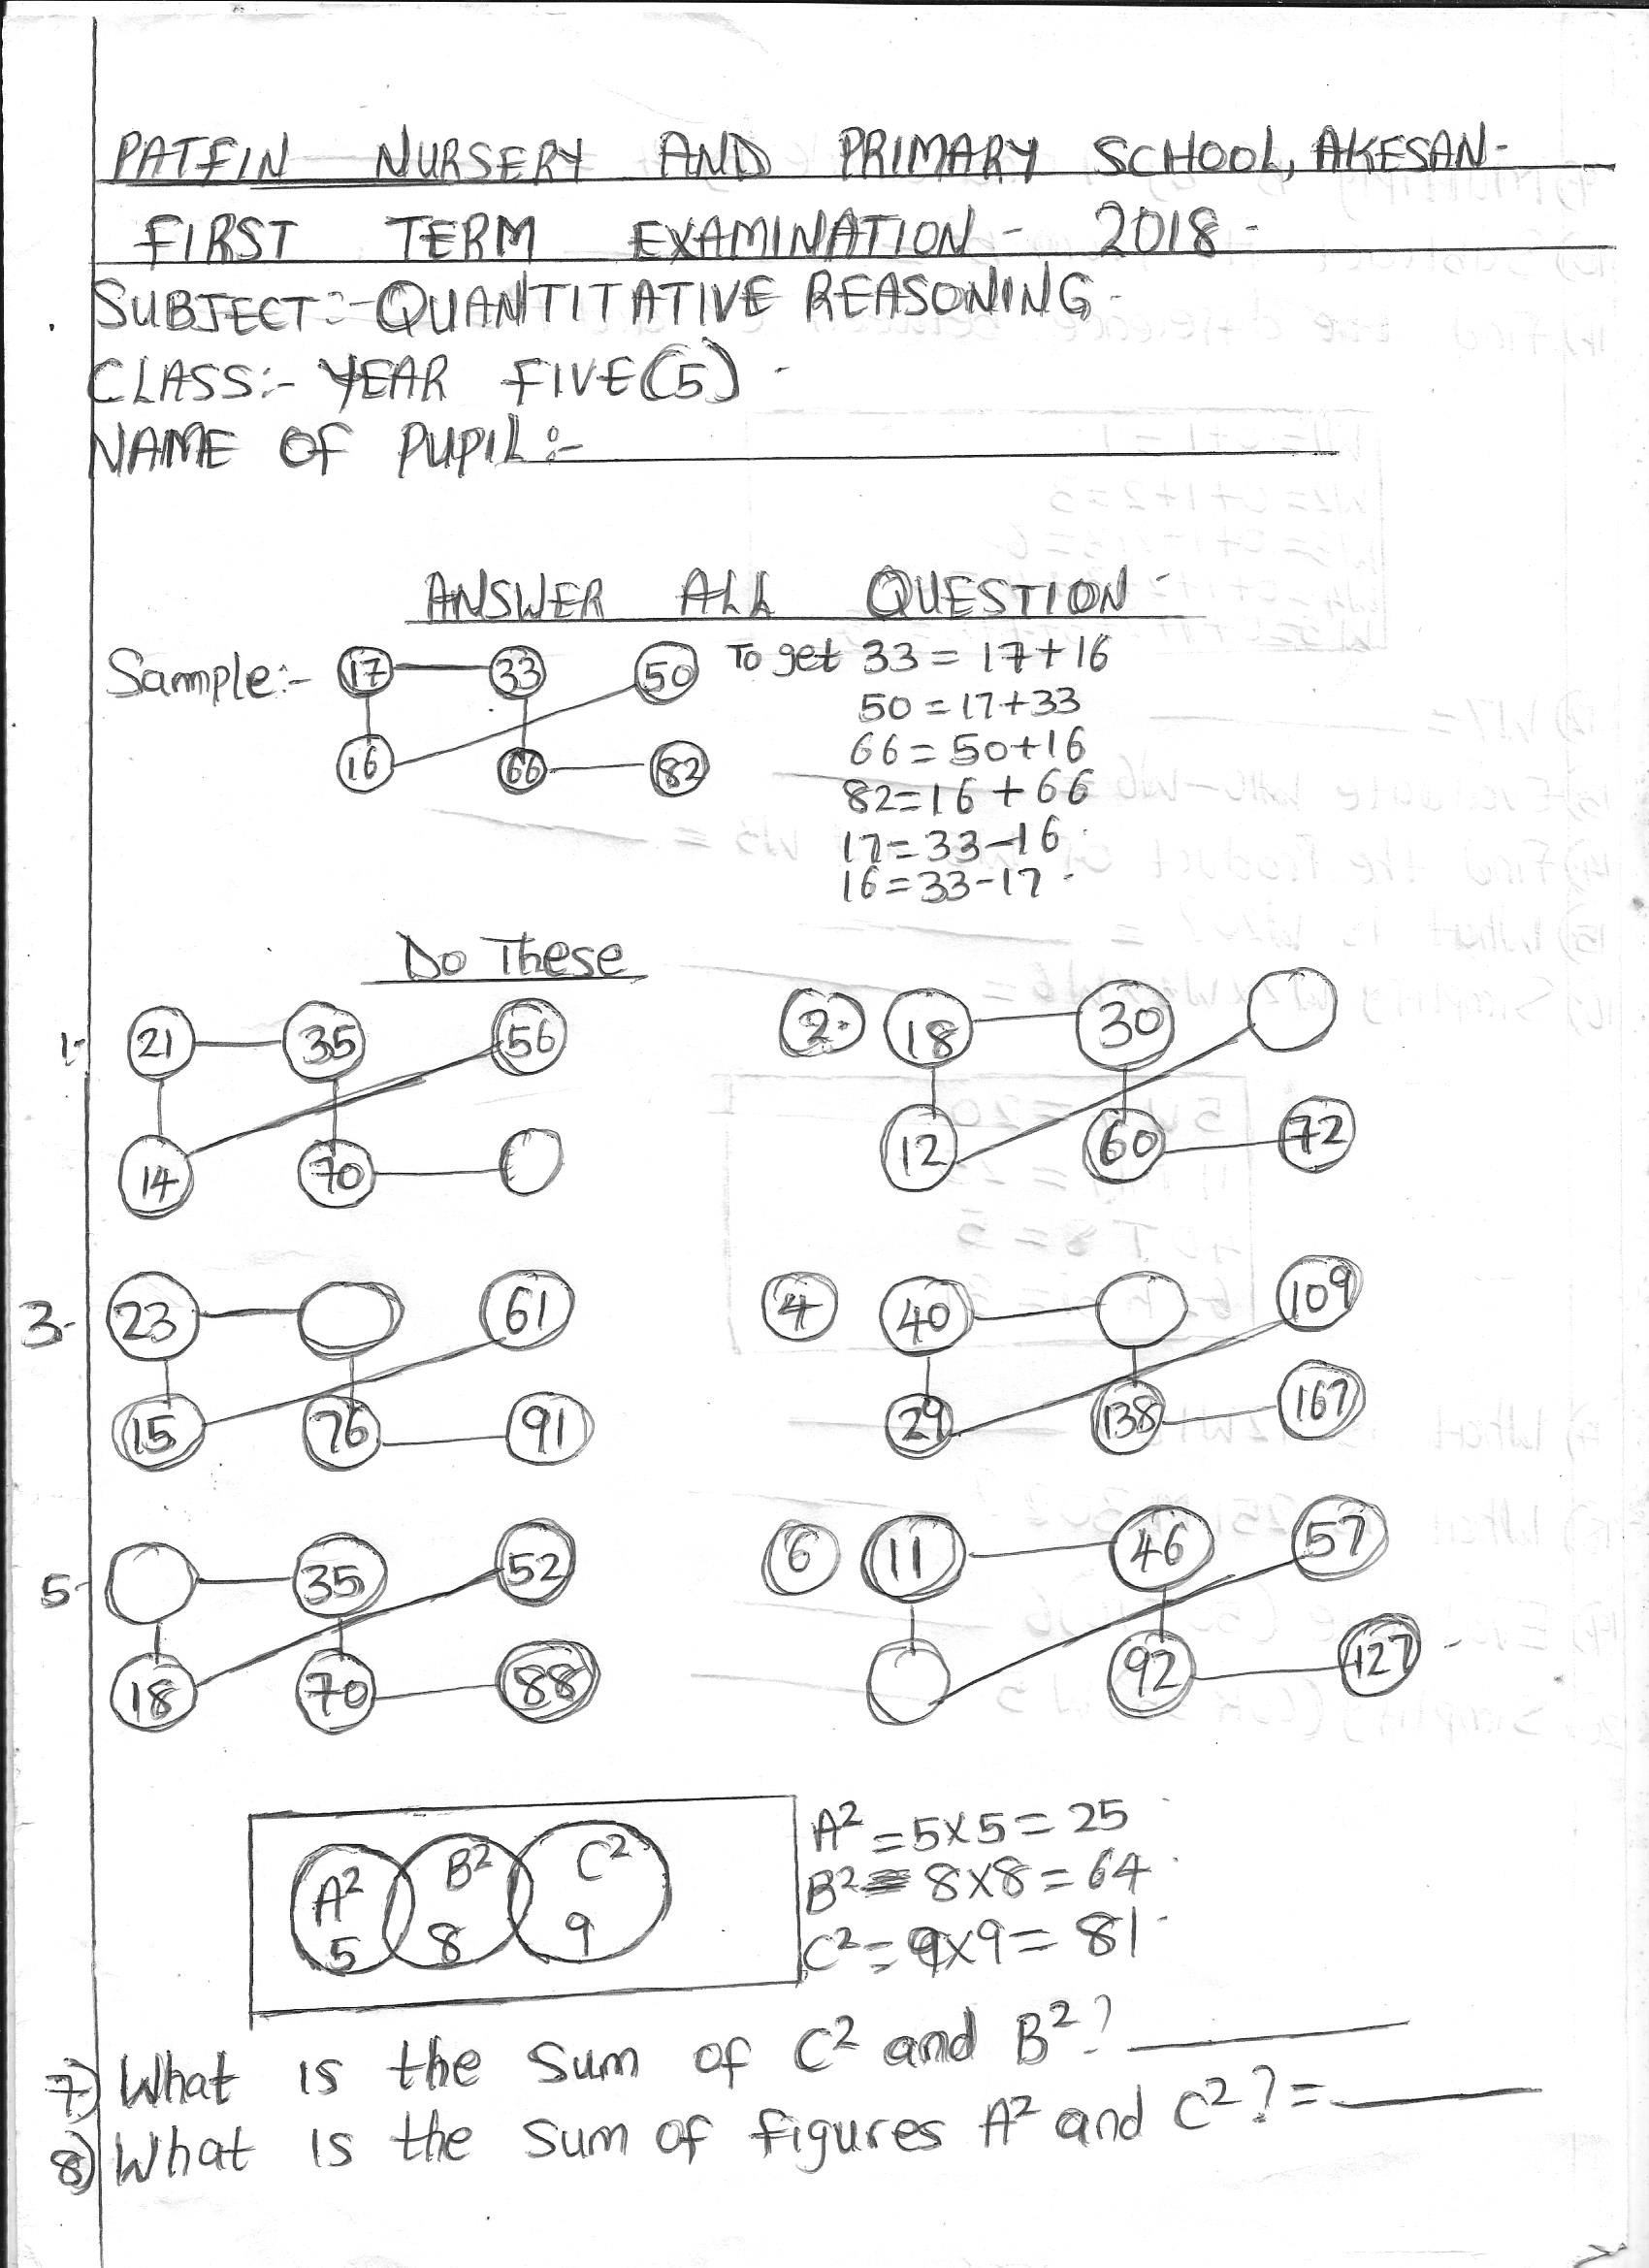 PATFIN NURSERY AND PRIMARY SCHOOL, AKESAN-
FIRST TERM EXAMINATION - 2018-
SUBJECT:- QUANTITATIVE REASONING-
CLASS:- YEAR FIVE(5)-
NAME OF PUPIL:-
ANSWER ALL QUESTION-
Sample:- 17 33 50 To get 33 = 17+16
50 = 17+33
16 66 82 66 = 50+16
82=16 + 66
17=33-16
16=33-17
Do These
1- 21 35 56
14 70
2. 18 30
12 60 72
3- 23 61
15 76 91
4 40 109
29 138 167
5- 35 52
18 70 88
6 11 46 57
92 127
A² B² C²
5 8 9
A² = 5x5 = 25
B² = 8x8 = 64
C² = 9x9 = 81
7) What is the sum of C² and B²?
8) What is the sum of figures A² and C²? =